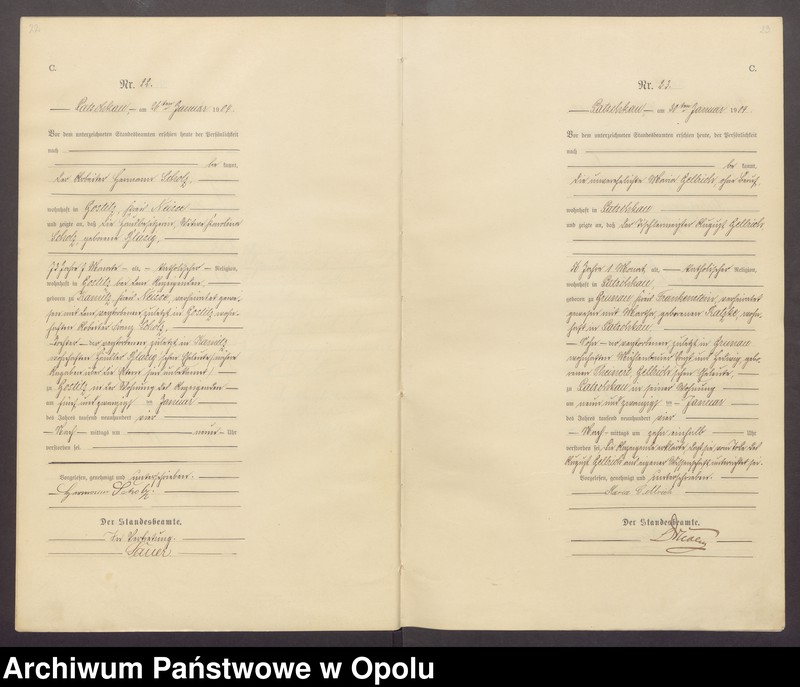 22.
C.
Nr. 22.
Patschkau, am 26ten Januar 1904.
Vor dem unterzeichneten Standesbeamten erschien heute der Persönlichkeit
nach
be kannt,
der Arbeiter Hermann Scholz,
wohnhaft in Gostitz, Kreis Neisse
und zeigte an, daß die Witwe Karoline
Scholz, geborene
73 Jahre 7 Monate alt, katholischer Religion,
wohnhaft in Gostitz bei dem Anzeigenden,
geboren zu Kamitz, Kreis Neisse, verheiratet gewe-
sen mit dem verstorbenen, zuletzt in Gostitz wohn-
haften Arbeiter Franz Scholz.
Tochter des verstorbenen, zuletzt in Kamitz
wohnhaften
zu Gostitz in der Wohnung des Anzeigenden
am fünf und zwanzigsten Januar
des Jahres tausend neunhundert vier
Nach mittags um neun Uhr
verstorben sei.
Vorgelesen, genehmigt und unterschrieben.
Hermann Scholz.
Der Standesbeamte.
In Vertretung.
23.
C.
Nr. 23.
Patschkau, am 30ten Januar 1904.
Vor dem unterzeichneten Standesbeamten erschien heute, der Persönlichkeit
nach
be kannt,
die unverehelichte Maria Gellrich, ohne Beruf,
wohnhaft in Patschkau
und zeigte an, daß der Tischlermeister August Gellrich
Jahre 1 Monat alt, katholischer Religion,
wohnhaft in Patschkau,
geboren zu Grunau Kreis Frankenstein, verheiratet
gewesen mit Martha, geborenen wohn-
haft in Patschkau.
Sohn der verstorbenen, zuletzt in Grunau
wohnhaften und Hedwig gebo-
renen Gellrich'schen Eheleute,
zu Patschkau in seiner Wohnung
am neun und zwanzigsten Januar
des Jahres tausend neunhundert vier
Nach mittags um zehn einhalb Uhr
verstorben sei. Die Anzeigende erklärte, daß sie vom Tode des
August Gellrich aus eigener Wissenschaft unterrichtet sei.
Vorgelesen, genehmigt und unterschrieben.
Maria Gellrich
Der Standesbeamte.
Archiwum Państwowe w Opolu